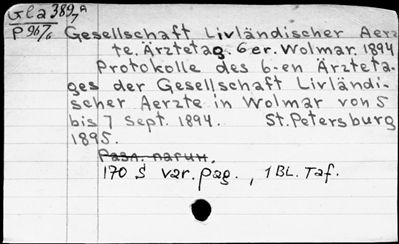 Gla 389/7 A
P 967/6 Gesellschaft Livländischer Aerz
te. Ärztetag. 6er. Wolmar. 1894
Protokolle des 6-en Ärzteta-
ges der Gesellschaft Livländi-
scher Aerzte in Wolmar von 5
bis 7 Sept. 1894. St. Petersburg
1895.
Разл. пагин.
170 S var. pag., 1 BL. Taf.